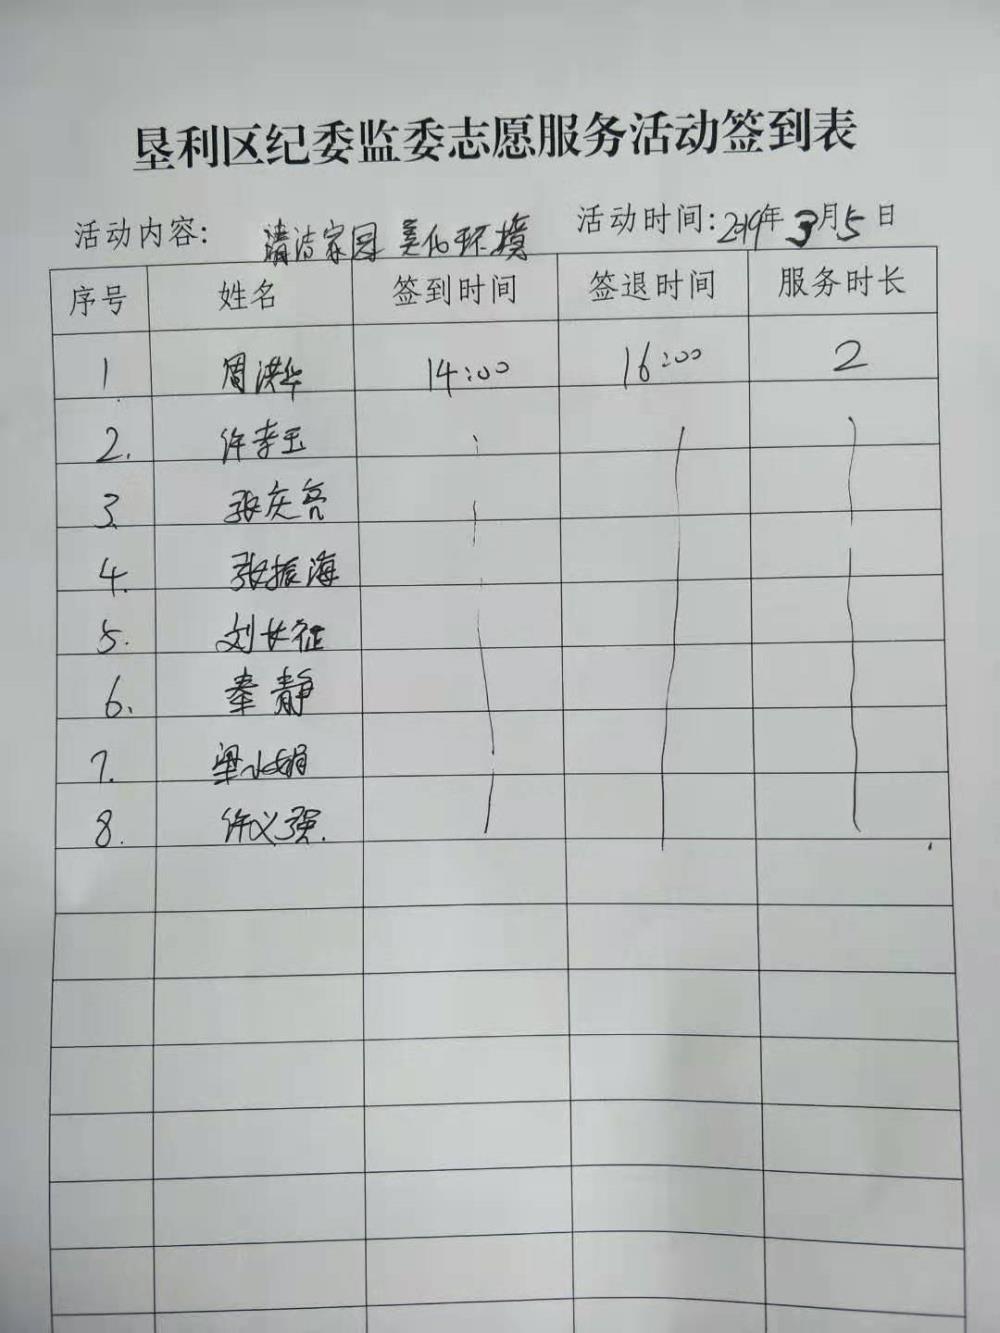 垦利区纪委监委志愿服务活动签到表
活动内容: 清洁家园 美化环境 活动时间:2019年3月5日
序号 姓名 签到时间 签退时间 服务时长
1 周洪华 14:00 16:00 2
2. 许孝玉
3. 张庆亮
4. 张振海
5. 刘长征
6. 秦静
7. 梁水娟
8. 许义强.